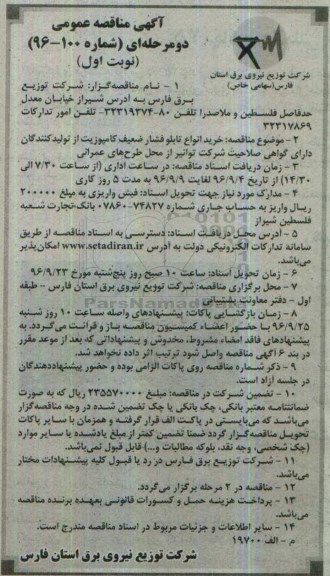 آگهی مناقصه عمومی
دومرحله‌ای (شماره ۱۰۰-۹۶)
(نوبت اول)
شرکت توزیع نیروی برق استان
فارس (سهامی خاص)
۱ - نام مناقصه‌گزار: شرکت توزیع
برق فارس به آدرس شیراز خیابان معدل
حدفاصل فلسطین و ملاصدرا تلفن ۸۰-۳۲۳۱۹۳۷۴ تلفن امور تدارکات
۳۲۳۱۷۸۶۹
۲ - موضوع مناقصه: خرید انواع تابلو فشار ضعیف کامپوزیت از تولیدکنندگان
دارای گواهی صلاحیت شرکت توانیر از محل طرح‌های عمرانی
۳ - زمان دریافت اسناد مناقصه: در ساعت اداری (از ساعت ۷/۳۰ الی
۱۴/۳۰) از تاریخ ۹۶/۹/۴ لغایت ۹۶/۹/۹ به مدت ۵ روز کاری
۴ - مدارک مورد نیاز جهت تحویل اسناد: فیش واریزی به مبلغ ۲۰۰۰۰۰
ریال واریز به حساب جاری شماره ۷۴۸۳۷-۰۷۸۶۰ بانک تجارت شعبه
فلسطین شیراز
۵ - آدرس محل دریافت اسناد: دسترسی به اسناد مناقصه از طریق
سامانه تدارکات الکترونیکی دولت به آدرس www.setadiran.ir امکان‌پذیر
می‌باشد.
۶ - زمان تحویل اسناد: ساعت ۱۰ صبح روز پنج‌شنبه مورخ ۹۶/۹/۲۳
۷ - محل برگزاری مناقصه: شرکت توزیع نیروی برق استان فارس - طبقه
اول - دفتر معاونت پشتیبانی
۸ - زمان بازگشایی پاکات: پیشنهادهای واصله ساعت ۱۰ روز شنبه
۹۶/۹/۲۵ با حضور اعضاء کمیسیون مناقصه باز و قرائت می‌گردد. به
پیشنهادهای فاقد امضاء مشروط، مخدوش و پیشنهاداتی که بعد از موعد مقرر
در بند ۶ آگهی مناقصه واصل شود ترتیب اثر داده نخواهد شد.
۹ - ذکر شماره مناقصه روی پاکات الزامی بوده و حضور پیشنهاددهندگان
در جلسه آزاد است.
۱۰ - تضمین شرکت در مناقصه: مبلغ ۲۳۵۵۷۰۰۰۰ ریال که به صورت
ضمانتنامه معتبر بانکی، چک بانکی یا چک تضمین شده در وجه مناقصه‌گزار
می‌باشد که می‌بایستی در پاکت الف قرار گرفته و همزمان با سایر پاکات
تحویل مناقصه‌گزار گردد ضمناً تضمین کمتر از مبلغ یادشده یا سایر موارد
(چک شخصی، وجه نقد، بلوکه مطالبات و...) قابل قبول نمی‌باشد.
۱۱ - شرکت توزیع برق فارس در رد یا قبول کلیه پیشنهادات مختار
می‌باشد.
۱۲ - مناقصه در ۲ مرحله برگزار می‌گردد.
۱۳ - پرداخت هزینه حمل و کسورات قانونی بعهده برنده مناقصه
می‌باشد.
۱۴ - سایر اطلاعات و جزئیات مربوط در اسناد مناقصه مندرج است.
م - الف ۱۹۷۰۰
شرکت توزیع نیروی برق استان فارس